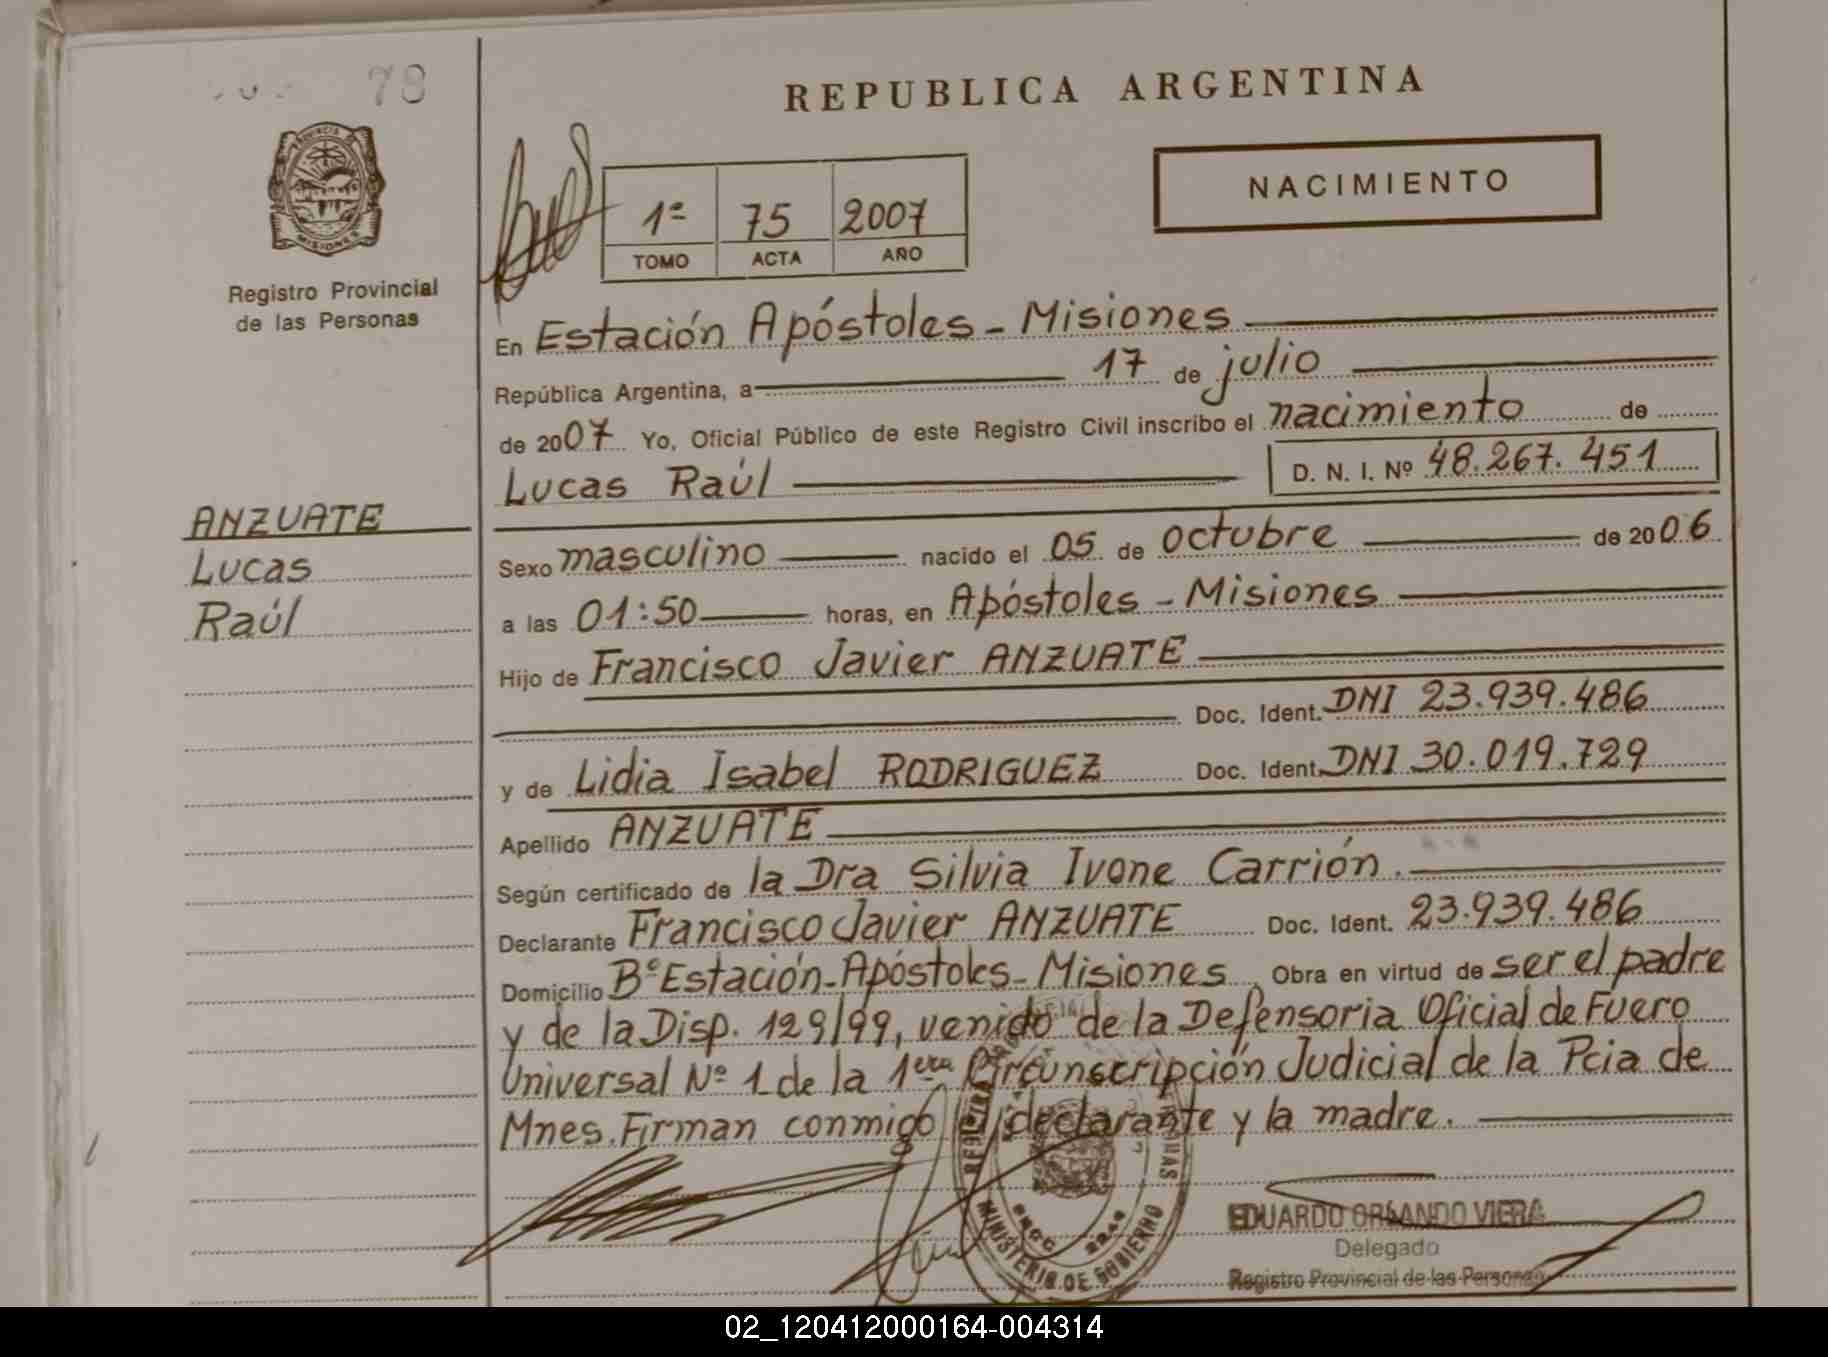 78
REPUBLICA ARGENTINA
NACIMIENTO
PROVINCIA
MISIONES
Registro Provincial
de las Personas
1º 75 2007
TOMO ACTA AÑO
En Estación Apóstoles - Misiones
República Argentina, a 17 de julio
de 2007 Yo, Oficial Público de este Registro Civil inscribo el nacimiento de
Lucas Raúl D. N. I. Nº 48.267.451
ANZUATE
Lucas
Raúl
Sexo masculino nacido el 05 de octubre de 2006
a las 01:50 horas, en Apóstoles - Misiones
Hijo de Francisco Javier ANZUATE
Doc. Ident. DNI 23.939.486
y de Lidia Isabel RODRIGUEZ Doc. Ident. DNI 30.019.729
Apellido ANZUATE
Según certificado de la Dra Silvia Ivone Carrión.
Declarante Francisco Javier ANZUATE Doc. Ident. 23.939.486
Domicilio Bº Estación - Apóstoles - Misiones Obra en virtud de ser el padre
y de la Disp. 129/99, venido de la Defensoria Oficial de Fuero
Universal Nº 1 de la 1era Circunscripción Judicial de la Pcia de
Mnes. Firman conmigo el declarante y la madre.
MINISTERIO DE GOBIERNO
EDUARDO ORLANDO VIERA
Delegado
Registro Provincial de las Personas
02_120412000164-004314